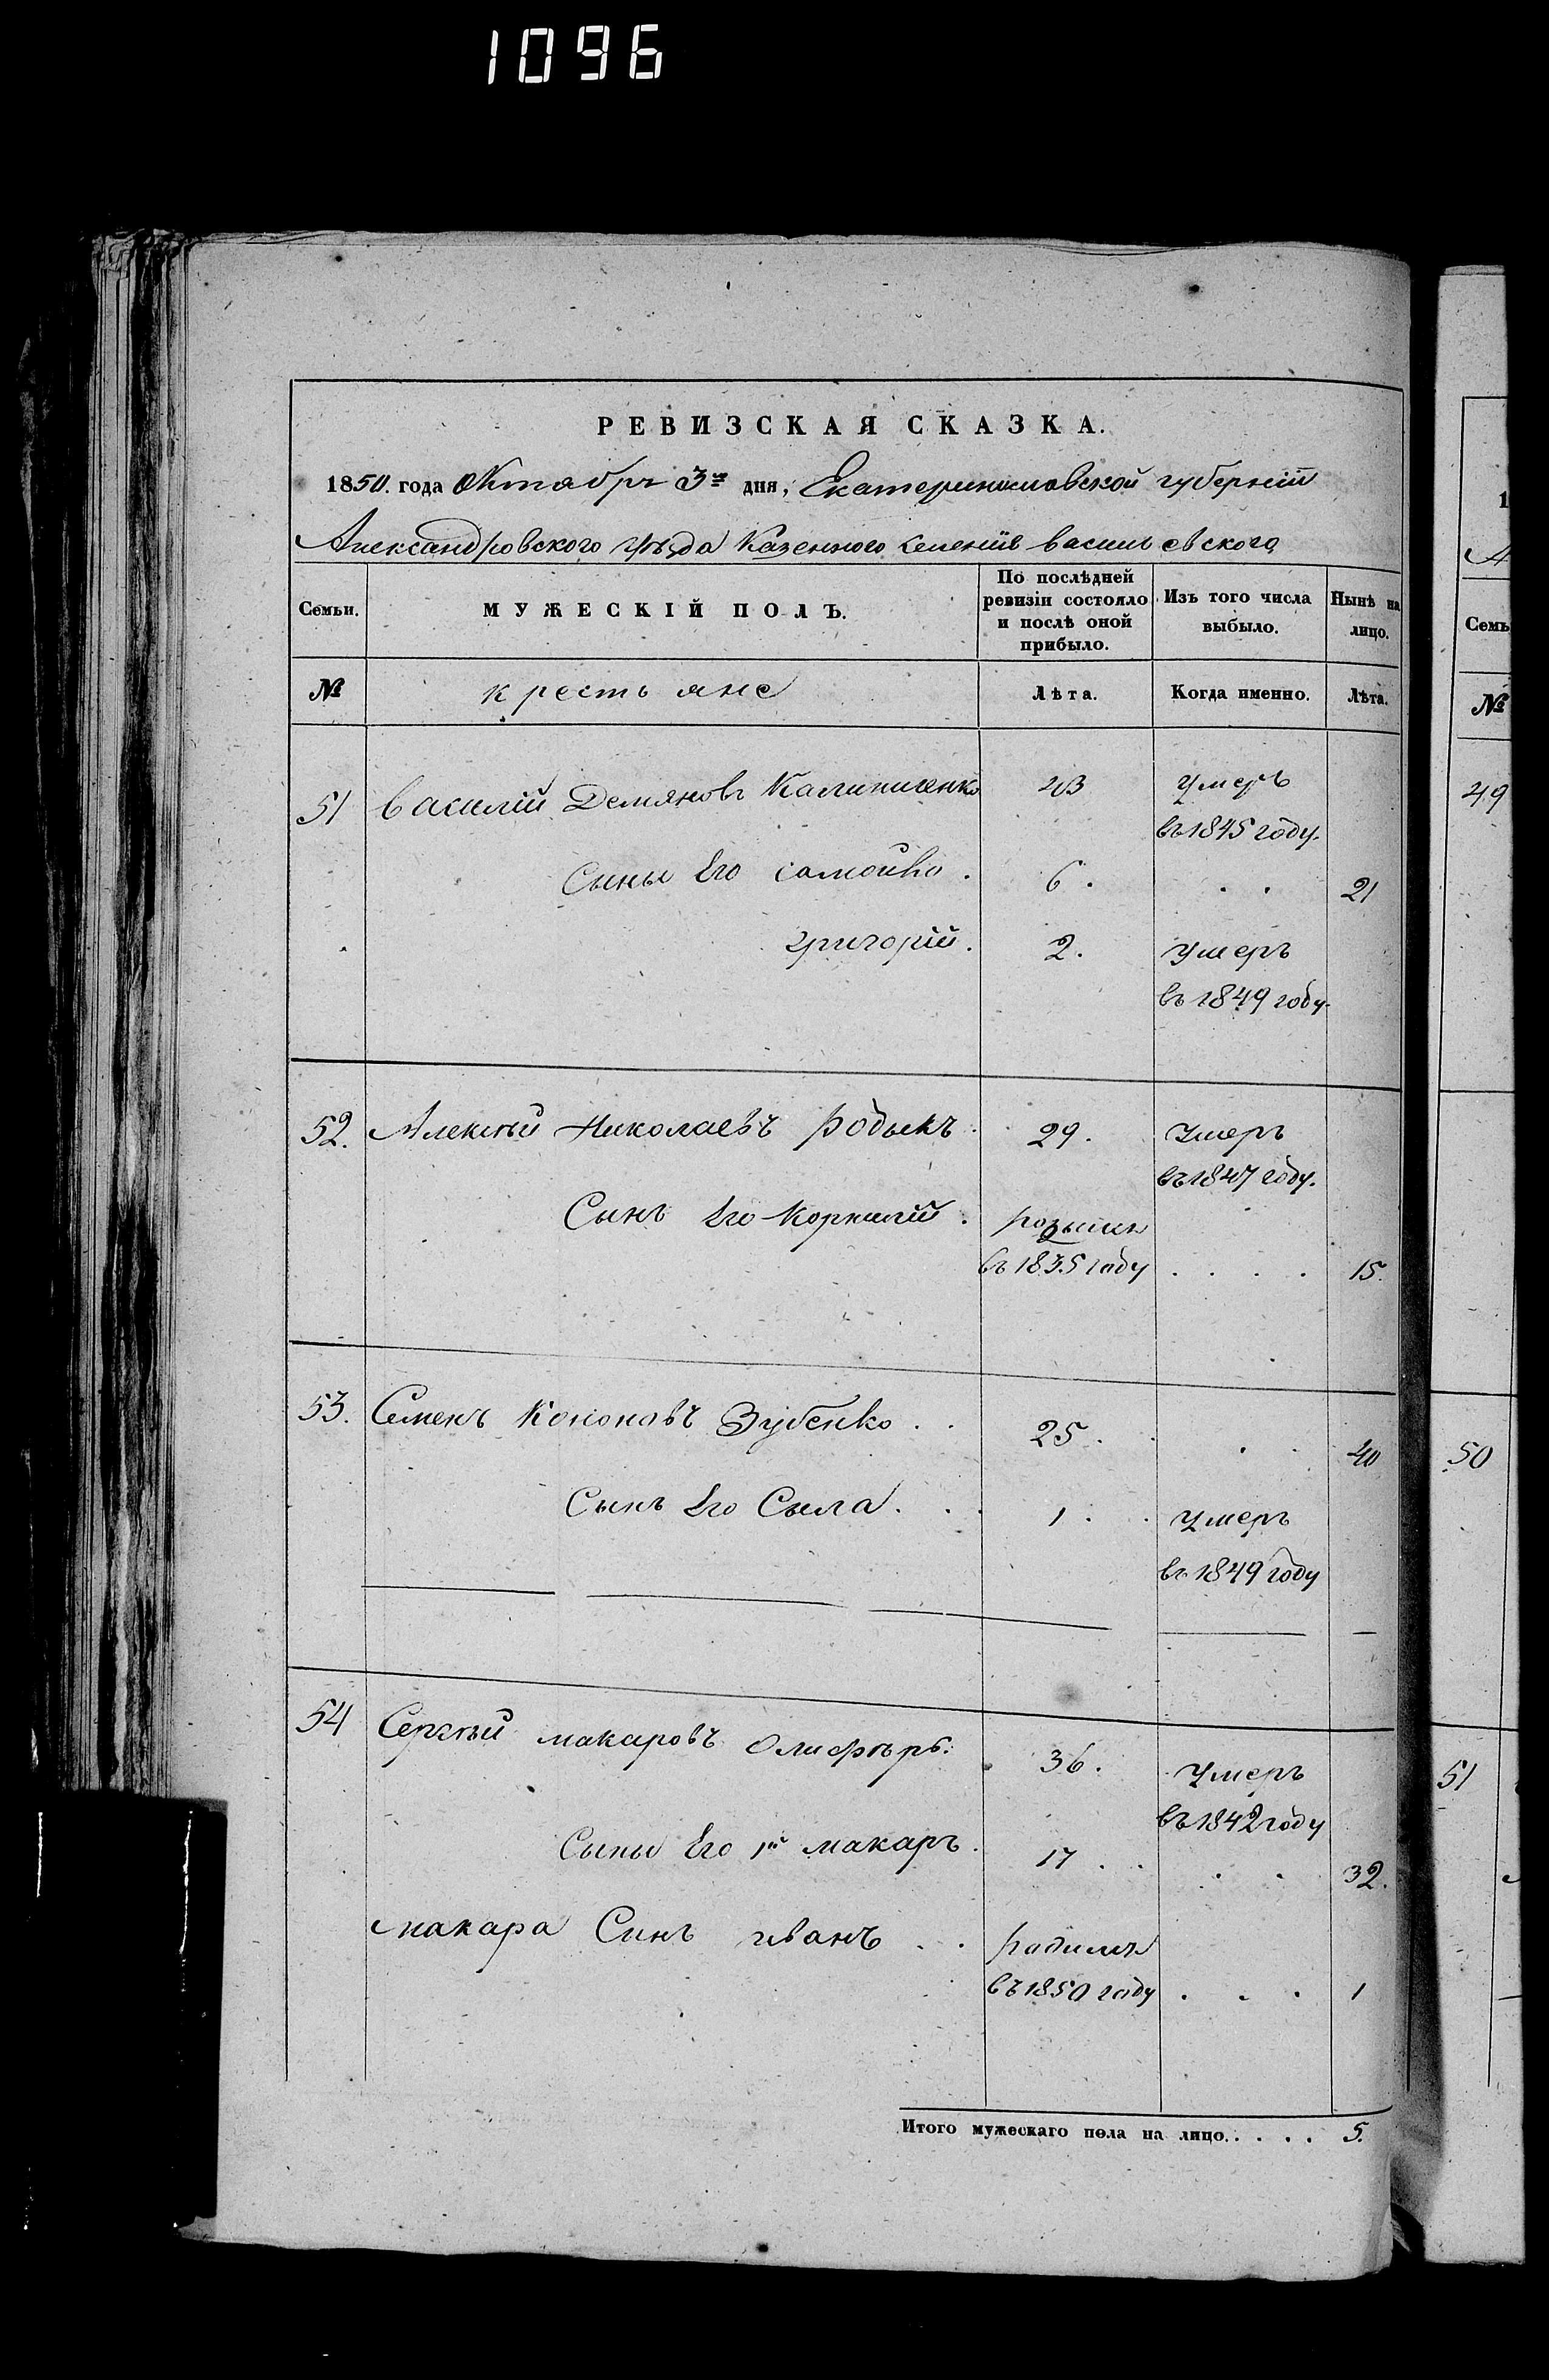 1096
РЕВИЗСКАЯ СКАЗКА.
1850. года Октября 3го дня, Екатеринославской губерніи
Александровского уѣзда Казенного селенія васильевского
Семьи. МУЖЕСКІЙ ПОЛЪ. По послѣдней ревизіи состояло и послѣ оной прибыло. Изъ того числа выбыло. Нынѣ на лицо.
№ крестьяне Лѣта. Когда именно. Лѣта.
51 василій Демяновъ Калиниченко 43 Умеръ
въ 1845 году.
Сыны Его самойло. 6. . . 21
григорій. 2. Умеръ
въ 1849 году.
52. Алексѣй Николаевъ Родыкъ. 29. Умеръ
въ 1847 году.
Сынъ Его Корнилій.
въ 1835 году . . . . 15.
53. Семенъ Кононовъ Зубенко . . 25. . . 40
Сынъ Его Сыла . . . 1. . Умеръ
въ 1849 году
54 Сергѣй макаровъ Олифѣръ. 36. Умеръ
въ 1842 году
Сыны Его 1й макаръ. 17 . . . . 32.
макара Синъ иванъ . . радился
въ 1850 году . . . 1
Итого мужескаго пола на лицо. . . . . 5.
1
А
Семь
№
49
50
51